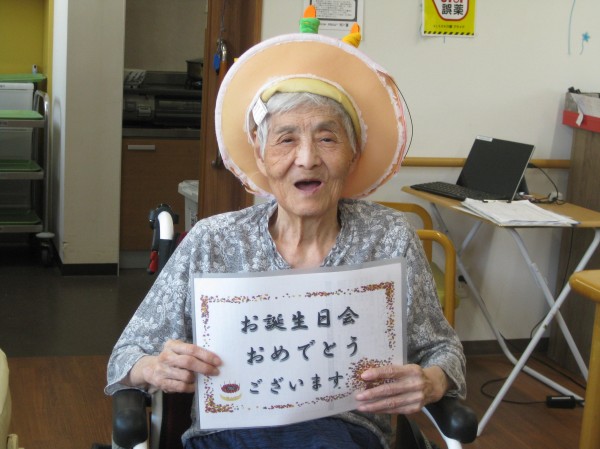 お誕生日会
おめでとう
ございます
誤薬